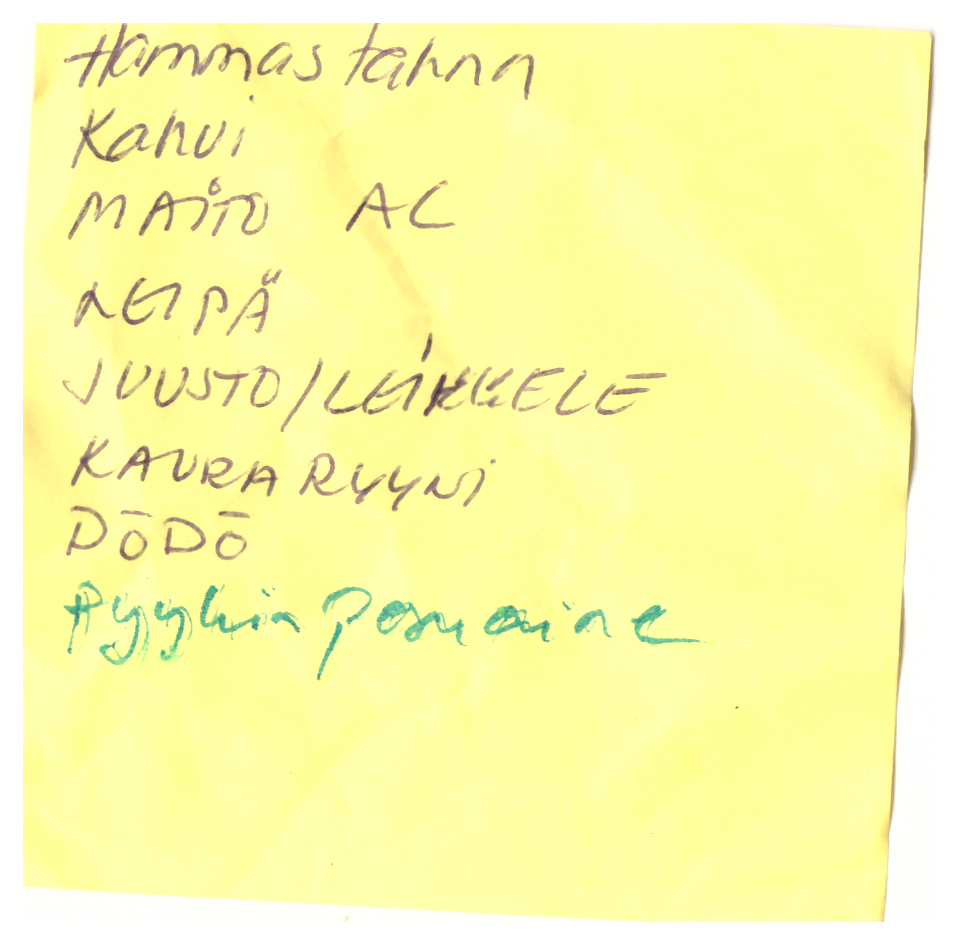 Hammas tahna
Kahvi
MAITO AC
LEIPÄ
JUUSTO/LEIKKELE
KAURARYYNI
DÖDÖ
Pyykin pesuaine